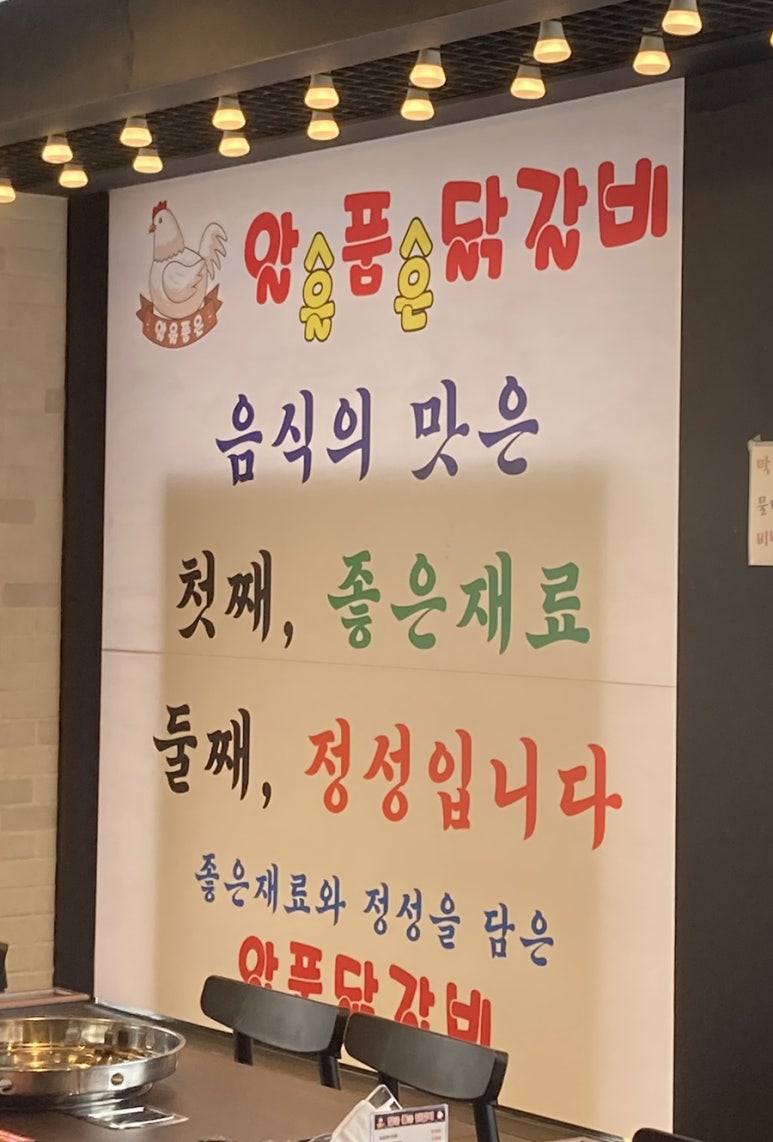 알을품은닭갈비
알을품은
음식의 맛은
첫째, 좋은재료
둘째, 정성입니다
좋은재료와 정성을 담은
알품닭갈비
막